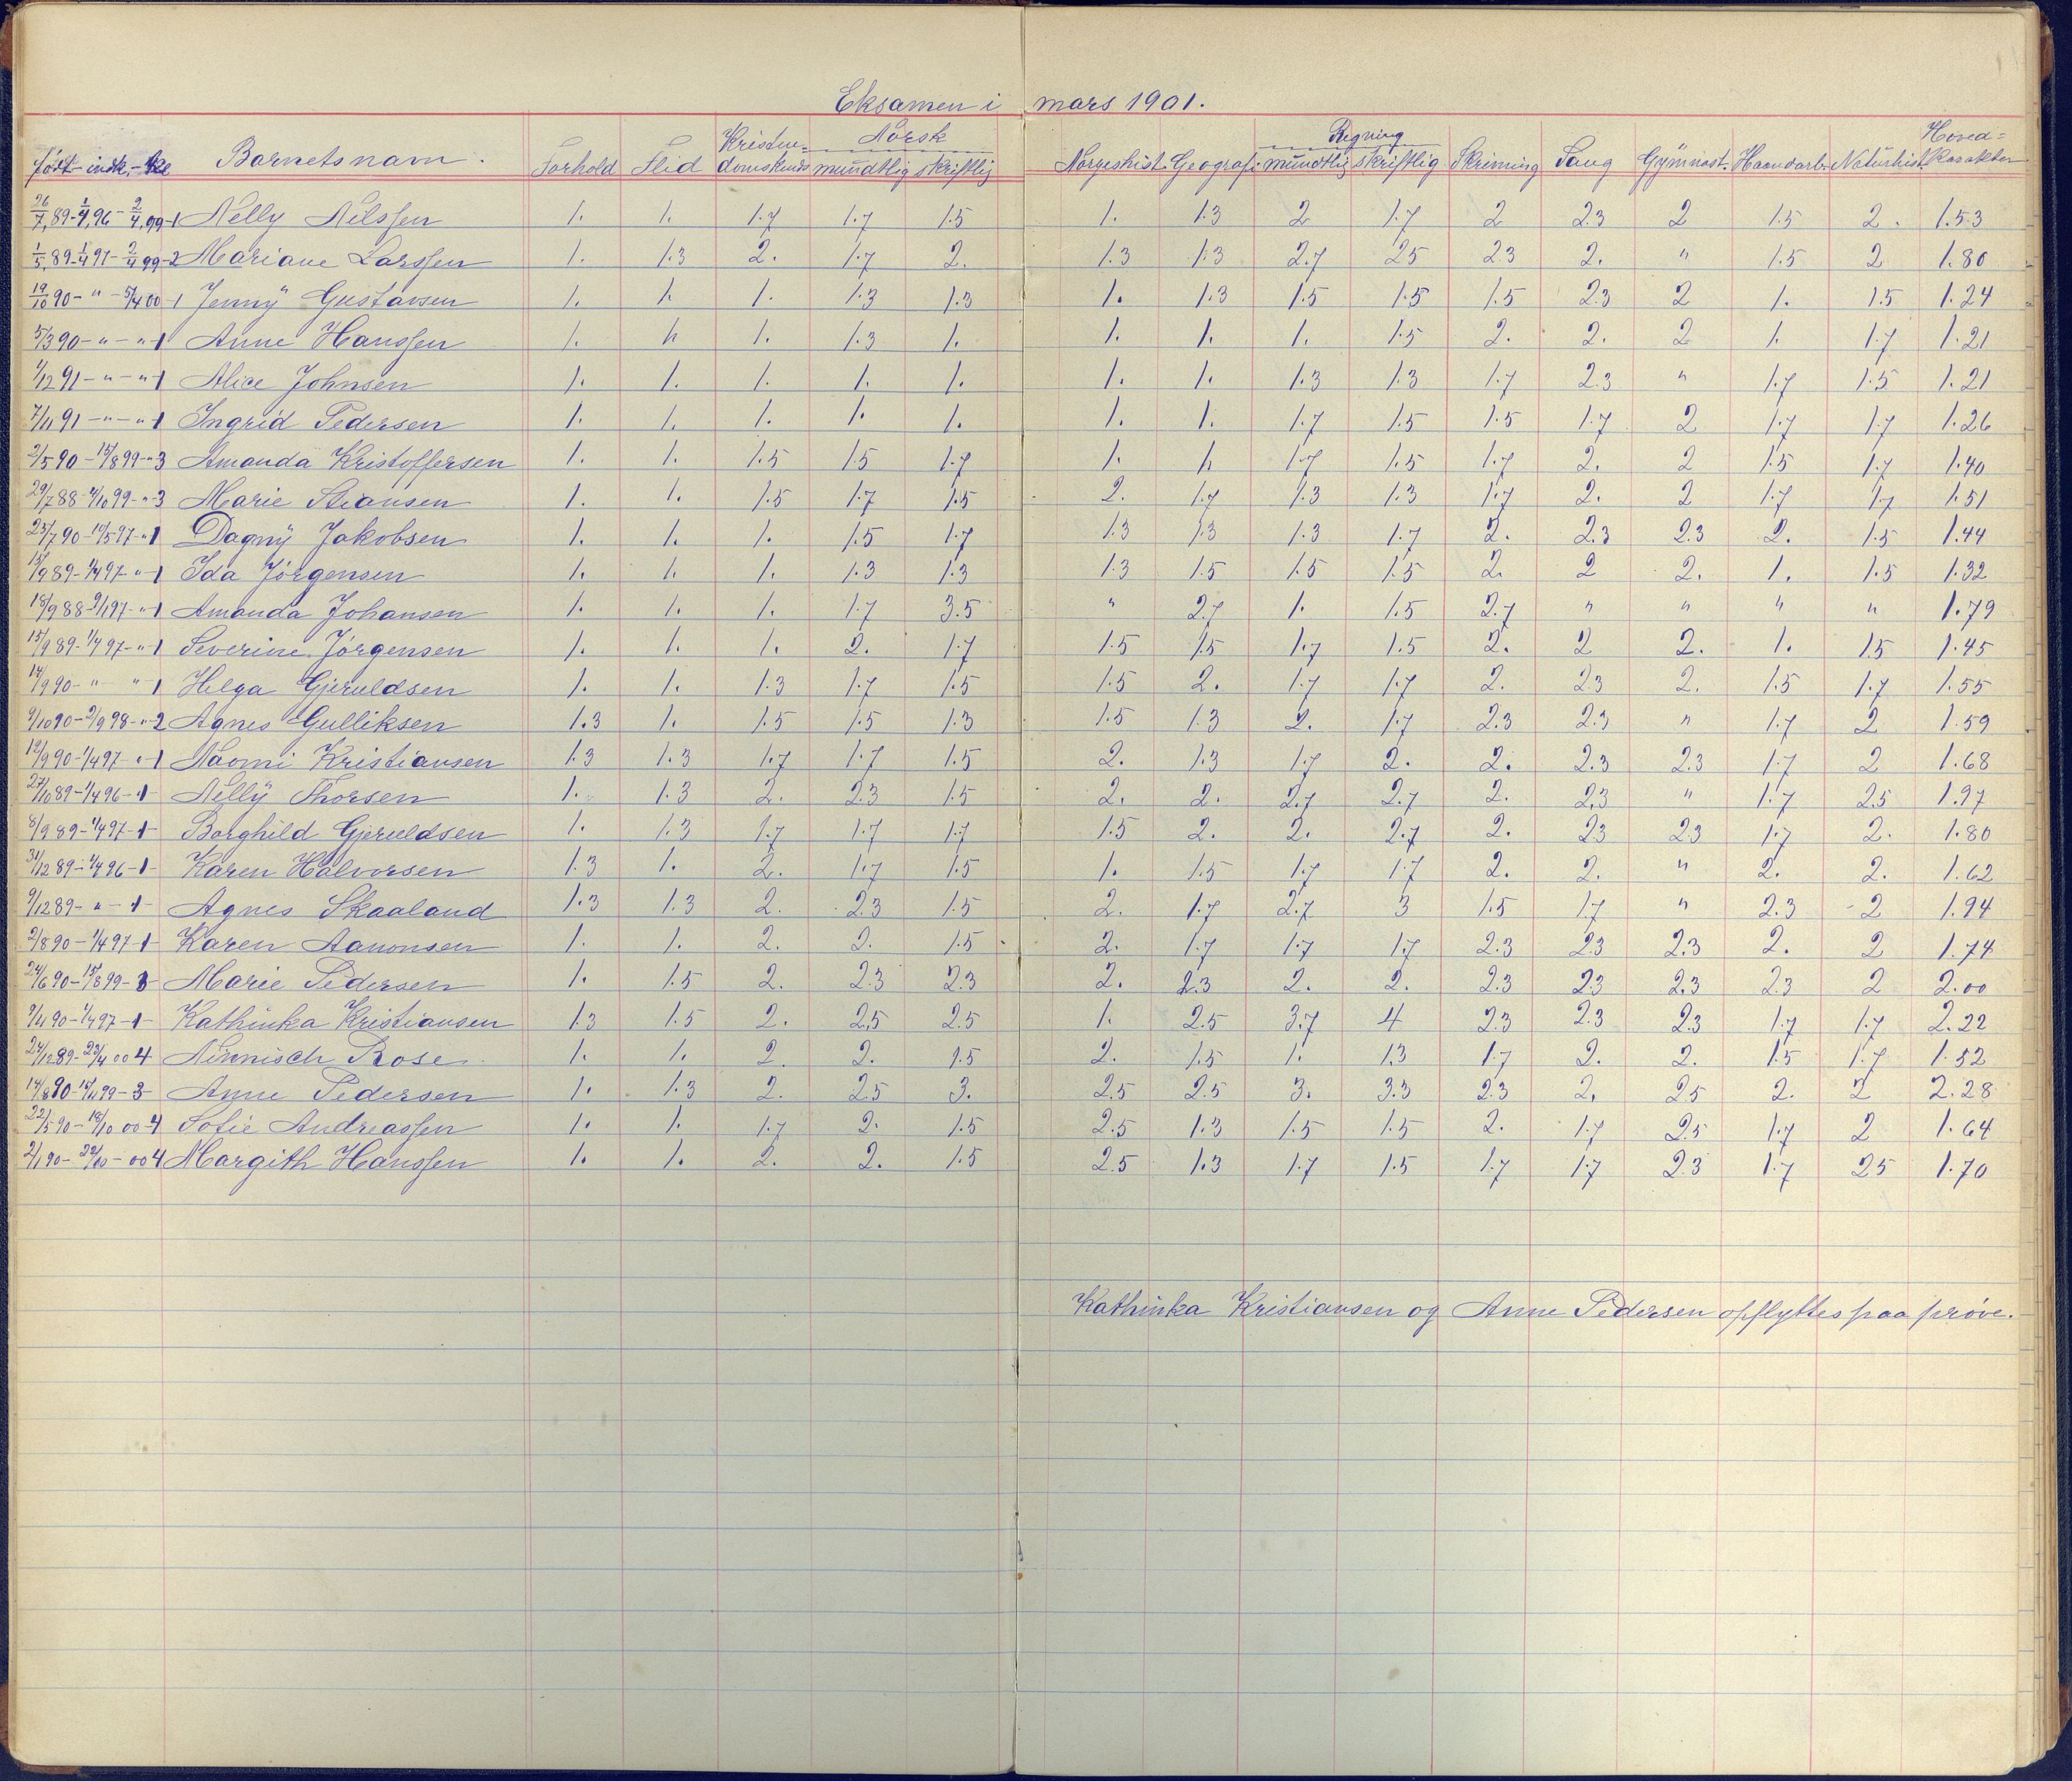 Eksamen i mars 1901.
Kristen- Norsk Regning Hoved-
født - indk. - Barnets navn. Forhold Flid domskunds. mundtlig skriftlig Norgeshist. Geografi mundtlig skriftlig Skrivning Sang Gymnast. Haandarb. Naturhist. Karakter
26/7,89-1/4,96-2/4,99-1 Nelly Nilssen 1. 1. 1.7 1.7 1.5 1. 1.3 2 1.7 2 2.3 2 1.5 2. 1.53
1/5,89-1/4 97-2/4 99-2 Mariane Larssen 1. 1.3 2. 1.7 2. 1.3 1.3 2.7 2.5 2.3 2. " 1.5 2 1.80
19/10 90- " -5/4 00-1 Jenny Gustavsen 1. 1. 1. 1.3 1.3 1. 1.3 1.5 1.5 1.5 2.3 2 1. 1.5 1.24
5/3 90- " - "-1 Anne Hanssen 1. 1. 1. 1.3 1. 1. 1. 1. 1.5 2. 2. 2 1. 1.7 1.21
1/12 91- " - "-1 Alice Johnsen 1. 1. 1. 1. 1. 1. 1. 1.3 1.3 1.7 2.3 " 1.7 1.5 1.21
7/11 91- " - "-1 Ingrid Pedersen 1. 1. 1. 1. 1. 1. 1. 1.7 1.5 1.5 1.7 2 1.7 1.7 1.26
2/5 90-15/8 99-"3 Amanda Kristoffersen 1. 1. 1.5 1.5 1.7 1. 1. 1.7 1.5 1.7 2. 2 1.5 1.7 1.40
29/7 88-4/10 99-"3 Marie Stiansen 1. 1. 1.5 1.7 1.5 2. 1.7 1.3 1.3 1.7 2. 2 1.7 1.7 1.51
23/7 90-10/5 97-"1 Dagny Jakobsen 1. 1. 1. 1.5 1.7 1.3 1.3 1.3 1.7 2. 2.3 2.3 2. 1.5 1.44
15/9 89-1/4 97-"-1 Ida Jörgensen 1. 1. 1. 1.3 1.3 1.3 1.5 1.5 1.5 2. 2 2. 1. 1.5 1.32
18/9 88-9/1 97-"-1 Amanda Johansen 1. 1. 1. 1.7 3.5 " 2.7 1. 1.5 2.7 " " " " 1.79
15/9 89-1/4 97-"-1 Severine Jörgensen 1. 1. 1. 2. 1.7 1.5 1.5 1.7 1.5 2. 2 2. 1. 1.5 1.45
14/9 90- " "-1 Helga Gjeruldsen 1. 1. 1.3 1.7 1.5 1.5 2. 1.7 1.7 2. 2.3 2. 1.5 1.7 1.55
9/10 90-2/9 98-"-2 Agnes Gulliksen 1.3 1. 1.5 1.5 1.3 1.5 1.3 2. 1.7 2.3 2.3 " 1.7 2 1.59
12/9 90-1/4 97-"-1 Naomi Kristiansen 1.3 1.3 1.7 1.7 1.5 2. 1.3 1.7 2. 2. 2.3 2.3 1.7 2 1.68
27/10 89-1/4 96-"1 Nelly Thorsen 1. 1.3 2. 2.3 1.5 2. 2. 2.7 2.7 2. 2.3 " 1.7 2.5 1.97
8/9 89-1/4 97-1- Borghild Gjeruldsen 1. 1.3 1.7 1.7 1.7 1.5 2. 2. 2.7 2. 2.3 2.3 1.7 2. 1.80
31/12 89-1/4 96-1- Karen Halvorsen 1.3 1. 2. 1.7 1.5 1. 1.5 1.7 1.7 2. 2. " 2. 2. 1.62
9/12 89- " -1- Agnes Skaaland 1.3 1.3 2. 2.3 1.5 2. 1.7 2.7 3 1.5 1.7 " 2.3 2 1.94
2/8 90-1/4 97-1- Karen Aanonsen 1. 1. 2. 2. 1.5 2. 1.7 1.7 1.7 2.3 2.3 2.3 2. 2 1.74
24/6 90-15/8 99-3- Marie Pedersen 1. 1.5 2. 2.3 2.3 2. 2.3 2. 2. 2.3 2.3 2.3 2.3 2 2.00
9/11 90-1/4 97-1- Kathinka Kristiansen 1.3 1.5 2. 2.5 2.5 1. 2.5 3.7 4 2.3 2.3 2.3 1.7 1.7 2.22
24/12 89-23/4 00 4 Rose 1. 1. 2. 2. 1.5 2. 1.5 1. 1.3 1.7 2. 2. 1.5 1.7 1.52
14/8 90-15/11 99-3- Anne Pedersen 1. 1.3 2. 2.5 3. 2.5 2.5 3. 3.3 2.3 2. 2.5 2. 2 2.28
22/5 90-18/10 00-4 Sofie Andreassen 1. 1. 1.7 2. 1.5 2.5 1.3 1.5 1.5 2. 1.7 2.5 1.7 2 1.64
2/1 90-22/10-00 4 Margith Hanssen 1. 1. 2. 2. 1.5 2.5 1.3 1.7 1.5 1.7 1.7 2.3 1.7 2.5 1.70
Kathinka Kristiansen og Anne Pedersen opflyttes paa prøve.